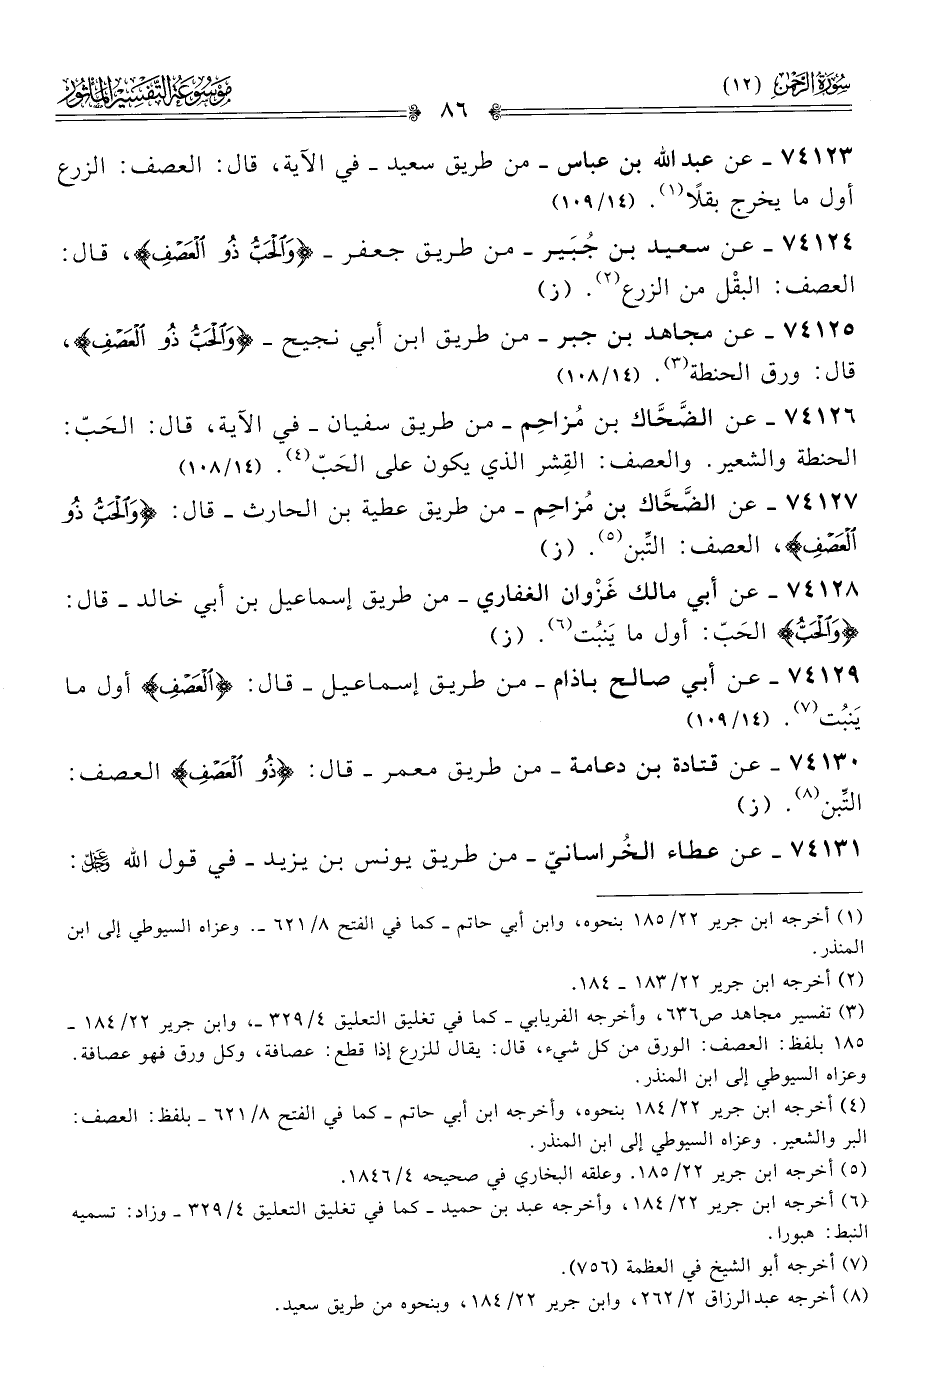 سورة الرحمن (١٢)
٨٦
موسوعة التفسير المأثور
٧٤١٢٣ ـ عن عبد الله بن عباس ـ من طريق سعيد ـ في الآية، قال: العصف: الزرع
أول ما يخرج بقلًا(١). (١٠٩/١٤)
٧٤١٢٤ ـ عن سعيد بن جُبَير ـ من طريق جعفر ـ ﴿وَالْحَبُّ ذُو الْعَصْفِ﴾، قال:
العصف: البقْل من الزرع(٢). (ز)
٧٤١٢٥ ـ عن مجاهد بن جبر ـ من طريق ابن أبي نجيح ـ ﴿وَالْحَبُّ ذُو الْعَصْفِ﴾،
قال: ورق الحنطة(٣). (١٠٨/١٤)
٧٤١٢٦ ـ عن الضَّحَّاك بن مُزاحِم ـ من طريق سفيان ـ في الآية، قال: الحَبّ:
الحنطة والشعير. والعصف: القِشر الذي يكون على الحَبّ(٤). (١٠٨/١٤)
٧٤١٢٧ ـ عن الضَّحَّاك بن مُزاحِم ـ من طريق عطية بن الحارث ـ قال: ﴿وَالْحَبُّ ذُو
الْعَصْفِ﴾، العصف: التِّبن(٥). (ز)
٧٤١٢٨ ـ عن أبي مالك غَزْوان الغفاري ـ من طريق إسماعيل بن أبي خالد ـ قال:
﴿وَالْحَبُّ﴾ الحَبّ: أول ما يَنبُت(٦). (ز)
٧٤١٢٩ ـ عن أبي صالح باذام ـ من طريق إسماعيل ـ قال: ﴿الْعَصْفِ﴾ أول ما
يَنبُت(٧). (١٠٩/١٤)
٧٤١٣٠ ـ عن قتادة بن دعامة ـ من طريق معمر ـ قال: ﴿ذُو الْعَصْفِ﴾ العصف:
التِّبن(٨). (ز)
٧٤١٣١ ـ عن عطاء الخُراسانيّ ـ من طريق يونس بن يزيد ـ في قول الله ﷿:
(١) أخرجه ابن جرير ٢٢/ ١٨٥ بنحوه، وابن أبي حاتم ـ كما في الفتح ٨/ ٦٢١ ـ. وعزاه السيوطي إلى ابن
المنذر.
(٢) أخرجه ابن جرير ٢٢/ ١٨٣ ـ ١٨٤.
(٣) تفسير مجاهد ص٦٣٦، وأخرجه الفريابي ـ كما في تغليق التعليق ٤/ ٣٢٩ ـ، وابن جرير ٢٢/ ١٨٤ ـ
١٨٥ بلفظ: العصف: الورق من كل شيء، قال: يقال للزرع إذا قطع: عصافة، وكل ورق فهو عصافة.
وعزاه السيوطي إلى ابن المنذر.
(٤) أخرجه ابن جرير ٢٢/ ١٨٤ بنحوه، وأخرجه ابن أبي حاتم ـ كما في الفتح ٨/ ٦٢١ ـ بلفظ: العصف:
البر والشعير. وعزاه السيوطي إلى ابن المنذر.
(٥) أخرجه ابن جرير ٢٢/ ١٨٥. وعلقه البخاري في صحيحه ٤/ ١٨٤٦.
(٦) أخرجه ابن جرير ٢٢/ ١٨٤، وأخرجه عبد بن حميد ـ كما في تغليق التعليق ٤/ ٣٢٩ ـ وزاد: تسميه
النبط: هبورا.
(٧) أخرجه أبو الشيخ في العظمة (٧٥٦).
(٨) أخرجه عبدالرزاق ٢/ ٢٦٢، وابن جرير ٢٢/ ١٨٤، وبنحوه من طريق سعيد.